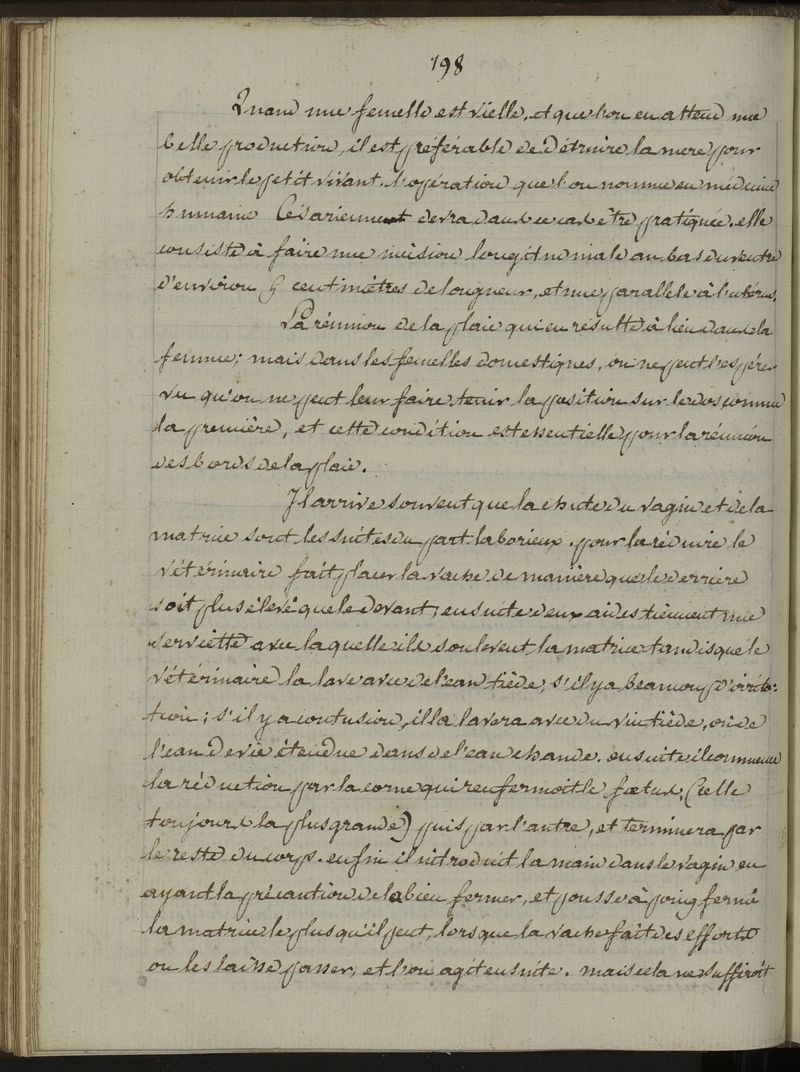 198
Quand une femelle est vielle, et que l'on en attend une
belle production, il est préférable de détruire la mere pour
obtenir le petit vivant. l'opération que l'on nomme en médecine
humaine Césarienne devra dans ce cas être pratiquée. elle
consiste à faire une incision longitudinale au bas du ventre
d'environ centimètres de longueur, et une parallele à l'utérus.
La réunion de la plaie qui en résulte à lieu dans la
femme; mais dans les femelles domestiques, on ne peut l'espérer
vu qu'on ne peut leur faire tenir la position sur le dos comme
la première, et cette condition est essentielle pour la réunion
des bords de la plaie.
Il arrive souvent que la chute du vagin et de la
matrice sont les suites du part laborieux. pour la réduire le
vétérinaire fait placer la vache de manière que le derrière
soit plus élevé que le devant; ensuite deux aides tiennent une
serviette avec laquelle ils soulevent la matrice tandis que le
vétérinaire la lave avec de l'eau tiède, s'il y a beaucoup d'irrita-
tion; s'il y a contusion, il la lavera avec du vin tiède, ou de
l'eau de vie étendue dans de l'eau chaude. ensuite il commence
la réduction par la corne qui renfermoit le fœtus, (celle
toujours la plus grande) puis par l'autre, et terminera par
le reste du corps. enfin il introduit la main dans le vagin en
ayant la précaution de la bien fermer, et pousse à poing fermé
la matrice le plus qu'il peut, lorsque la vache fait des efforts
on les laisse passer, et l'on agit ensuite. mais cela ne suffiroit